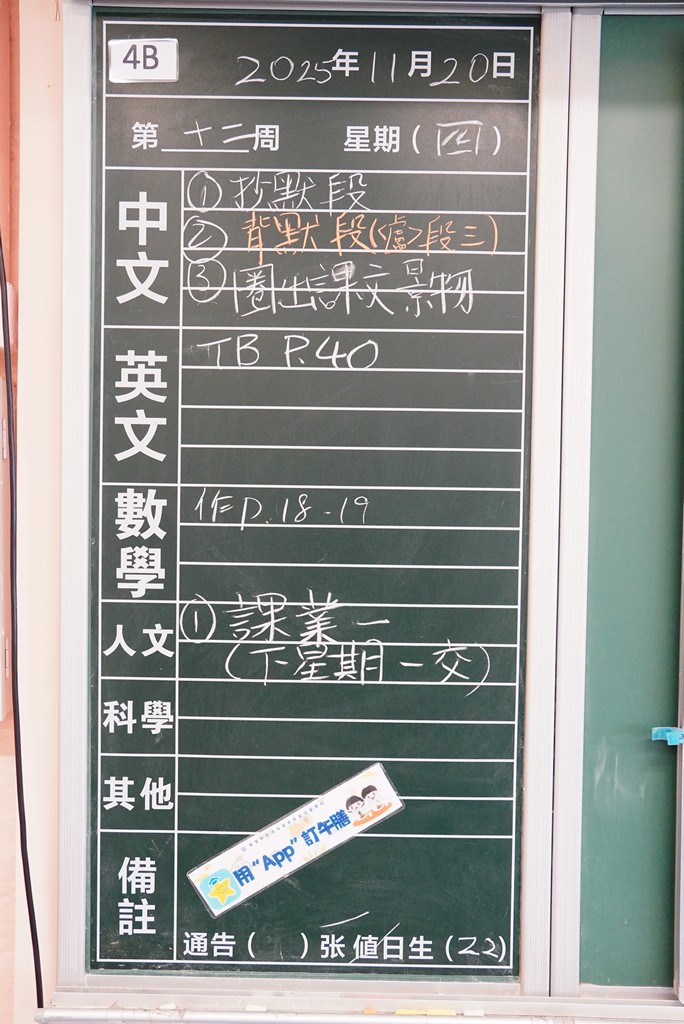 4B
2025年11月20日
第十二周 星期(四)
中文
①抄默段
②背默段(<盧>段三)
③圈出課文景物
英文
TB P.40
數學
作P.18-19
人文
①課業一
(下星期一交)
科學
其他
備註
用“App”訂午膳
通告( )张 值日生(22)